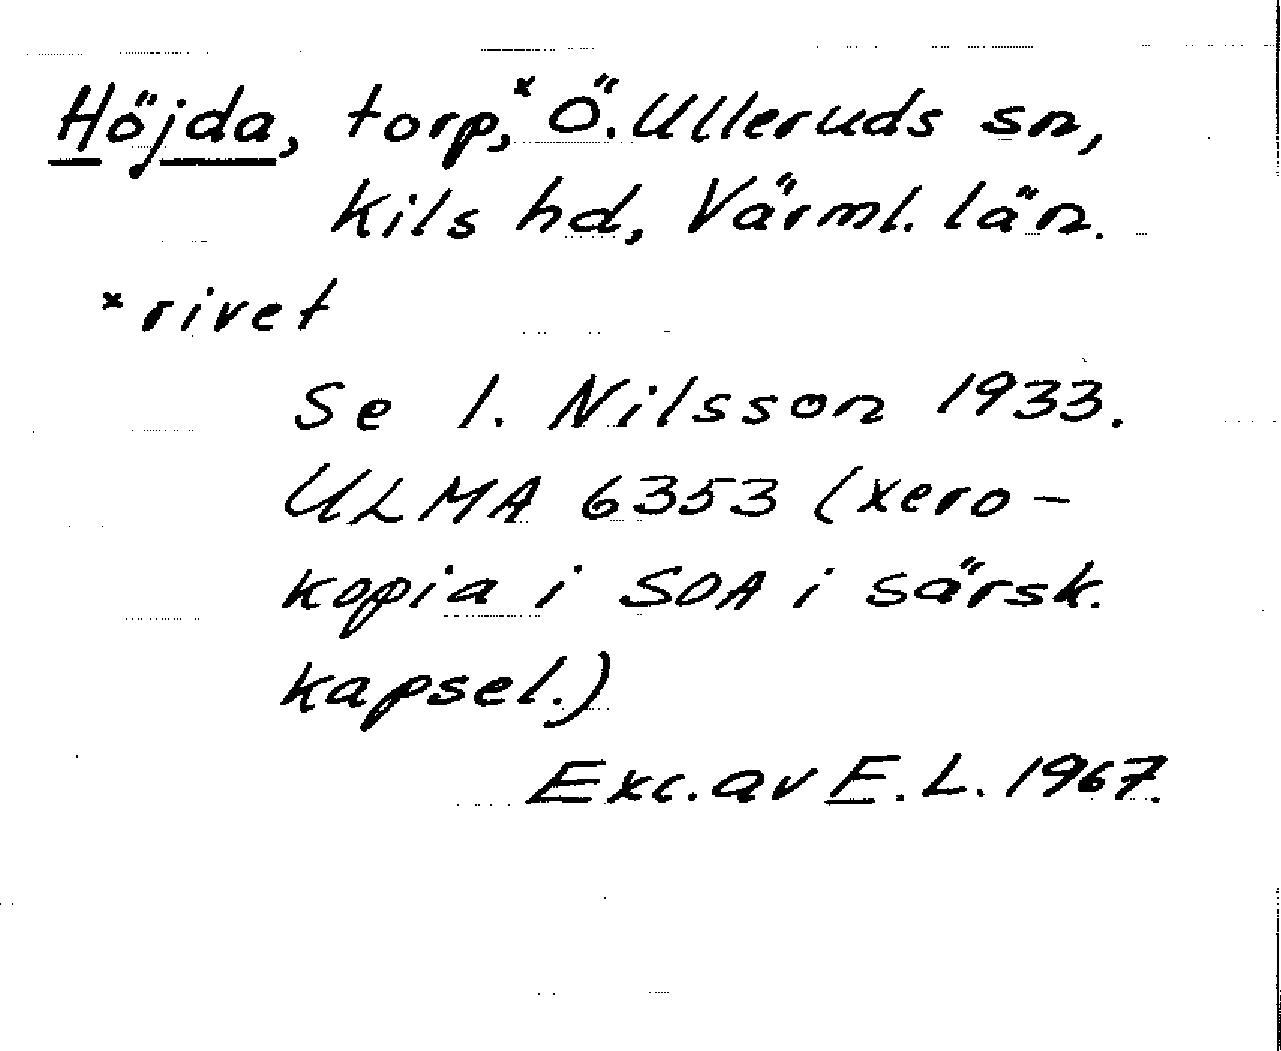 Höjda, torp,ˣ Ö. Ulleruds sn,
Kils hd, Värml. län.
ˣ rivet
Se I. Nilsson 1933.
ULMA 6353 (xero-
kopia i SOA i särsk.
kapsel.)
Exc. av E. L. 1967.